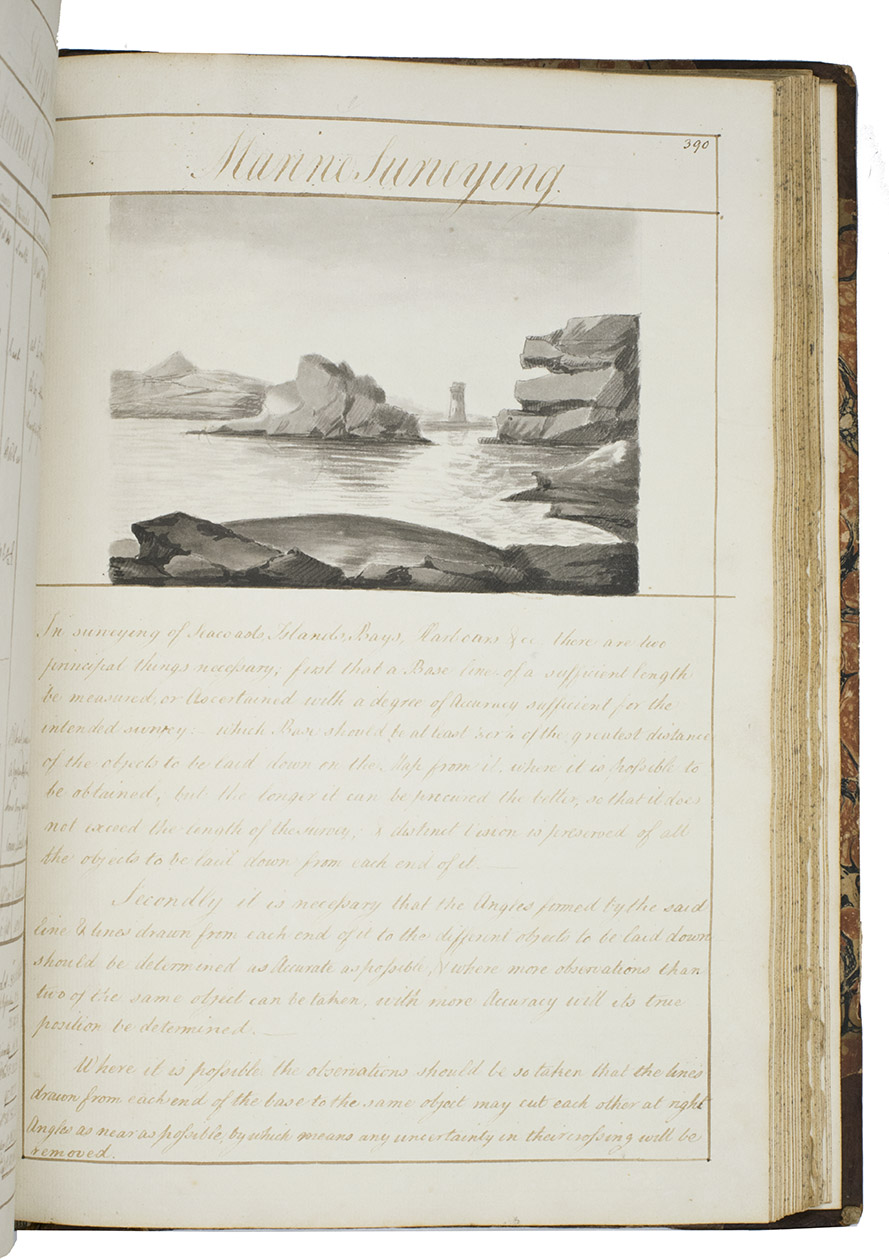 390
Marine Surveying.
In surveying of Seacoasts, Islands, Bays, Harbours &c there are two
principal things necessary; first that a Base line of a sufficient length
be measured, or Ascertained with a degree of Accuracy sufficient for the
intended survey: which Base should be at least of the greatest distance
of the objects to be laid down on the Map from it, where it is possible to
be obtained; but the longer it can be procured the better, so that it does
not exceed the length of the survey; & distinct Vision is preserved of all
the objects to be laid down from each end of it.
Secondly it is necessary that the Angles formed by the said
line & lines drawn from each end of it to the different objects to be laid down
should be determined as Accurate as possible, & where more observations than
two of the same object can be taken, with more Accuracy will its true
position be determined.
Where it is possible the observations should be so taken that the lines
drawn from each end of the base to the same object may cut each other at right
Angles as near as possible, by which means any uncertainty in their crossing will be
removed.